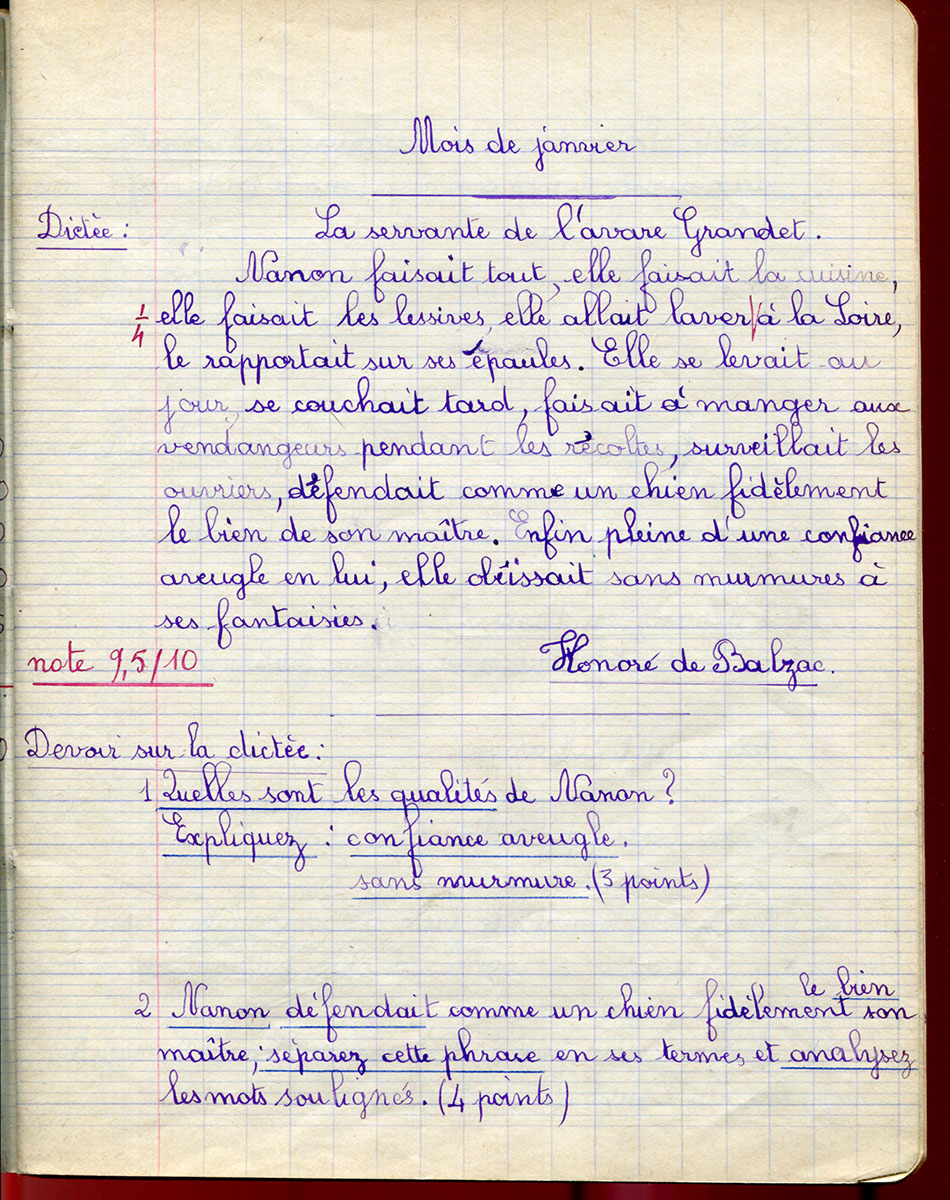 Mois de janvier
Dictée : La servante de l'avare Grandet.
Nanon faisait tout, elle faisait la cuisine,
1/4 elle faisait les lessives, elle allait laver / à la Loire,
le rapportait sur ses épaules. Elle se levait au
jour, se couchait tard, faisait à manger aux
vendangeurs pendant les récoltes, surveillait les
ouvriers, défendait comme un chien fidèlement
le bien de son maître. Enfin pleine d'une confiance
aveugle en lui, elle obéissait sans murmures à
ses fantaisies.
note 9,5/10 Honoré de Balzac.
Devoir sur la dictée :
1 Quelles sont les qualités de Nanon ?
Expliquez : confiance aveugle.
sans murmure. (3 points)
le bien
2 Nanon défendait comme un chien fidèlement son
maître, séparez cette phrase en ses termes et analysez
les mots soulignés. (4 points)